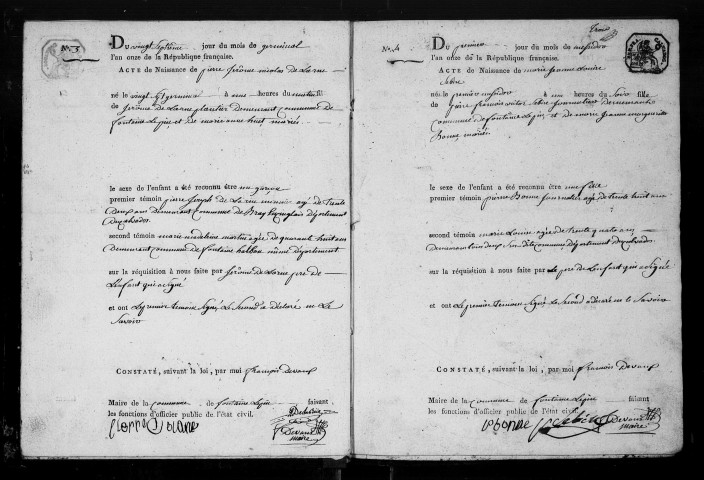 No. 3
Du vingt septieme jour du mois de germinal
l'an onze de la République française.
Acte de Naissance de pierre jérôme nicolas De Larue
né le vingt sept germinal à une heures du matin fils
de jérôme de Larue demeurant commune de
fontaine Le pin et de marie anne huet mariés
le sexe de l'enfant a été reconnu être un garçon
premier témoin pierre joseph de La rue agé de trente
deux ans demeurant commune de Bray département
Du calvados
second témoin marie madeleine martin agée de quarante huit ans
demeurant commune de fontaine halbout même département
sur la réquisition à nous faite par jérôme de Larue père de
L'enfant qui a signé
et ont Le premier temoin signé Le Second a déclaré ne Le
Savoir
Constaté, suivant la loi, par moi françois Devaux
Maire de la commune de fontaine Le pin faisant
les fonctions d'officier public de l'état civil.
Devaux
maire
No. 4
trois
Du premier jour du mois de messidor
l'an onze de la République française.
Acte de Naissance de marie jeanne
né le premier messidor à une heures du Soir fille
de françois victor demeurant
commune de fontaine Le pin et de marie jeanne marguerite
Bonne mariés
le sexe de l'enfant a été reconnu être une fille
premier témoin pierre Bonne agé de trente huit ans
second témoin marie Louise agée de trente quatre ans
demeurant tous deux Susdite commune Département du calvados
sur la réquisition à nous faite par Le père de L'enfant qui a Signé
et ont Le premier temoin Signé Le Second a déclaré ne le Savoir
Constaté, suivant la loi, par moi francois Devaux
Maire de la commune de fontaine Le pin faisant
les fonctions d'officier public de l'état civil.
p bonne
Devaux
maire